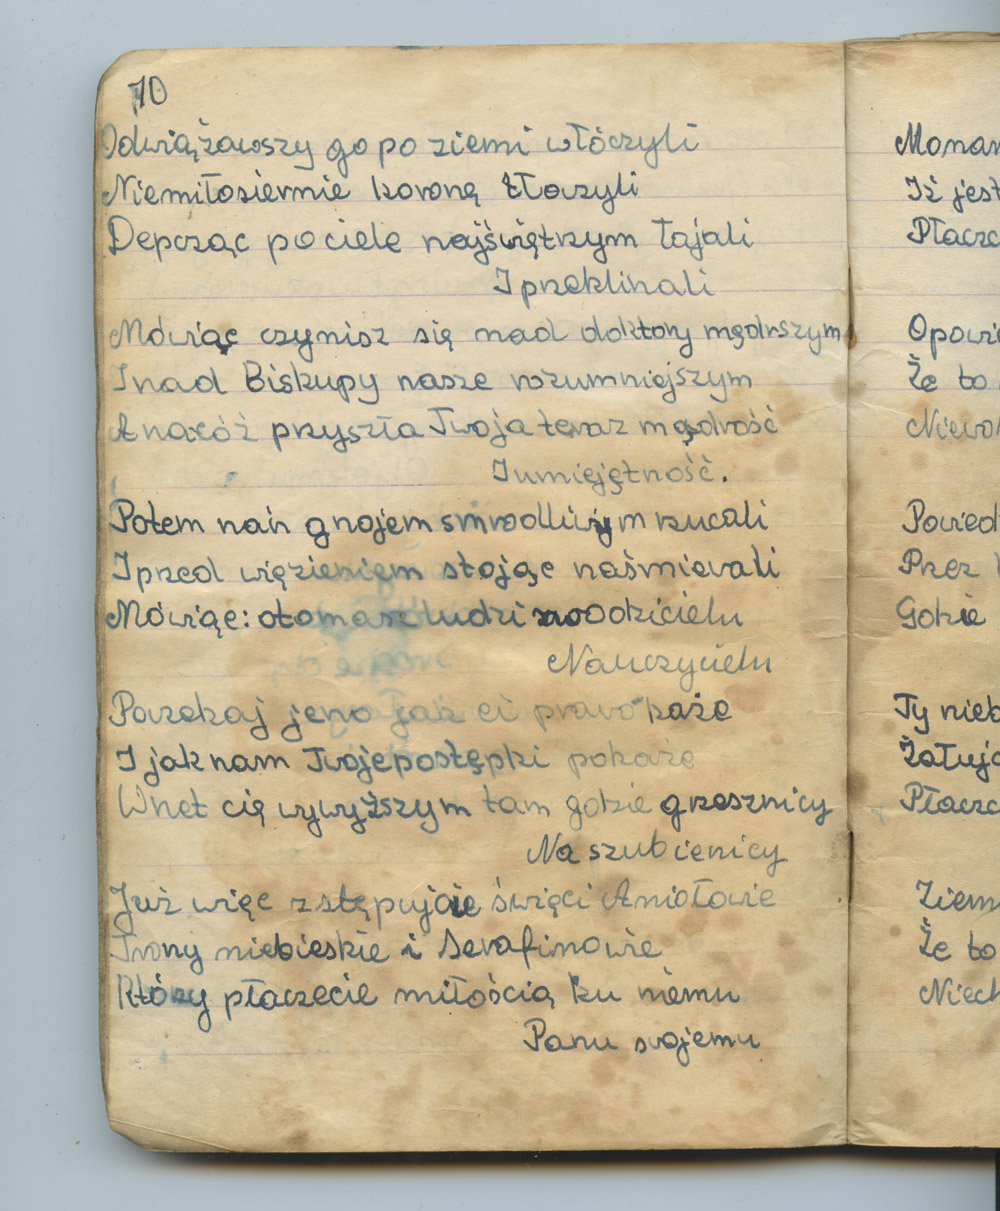 70
Odwiążawszy go po ziemi włóczyli
Niemiłosiernie koroną tłoczyli
Depcząc po ciele najświętrzym łajali
I przeklinali
Mówiąc czynisz się nad doktory mądrszym
I nad Biskupy nasze rozumniejszym
A nacóż przyszła Twoja teraz mądrość
I umiejętność.
Potem nań gnojem smrodliwym rzucali
I przed więzieniem stojąc naśmiewali
Mówiąc: oto masz ludzi zwodzicielu
Nauczycielu
Poczekaj jeno jak ci prawo każe
I jak nam Twoje postępki pokaże
Wnet cię wywyższym tam gdzie grzesznicy
Na szubienicy
Już więc zstępujcie święci Aniołowie
Trony niebieskie i Serafinowie
Którzy płaczecie miłością ku niemu
Panu swojemu
Iż jest
Że to
Powied
Przez
Gdzie
Ty nieb
Żałują
Ziem
Że to
Niech